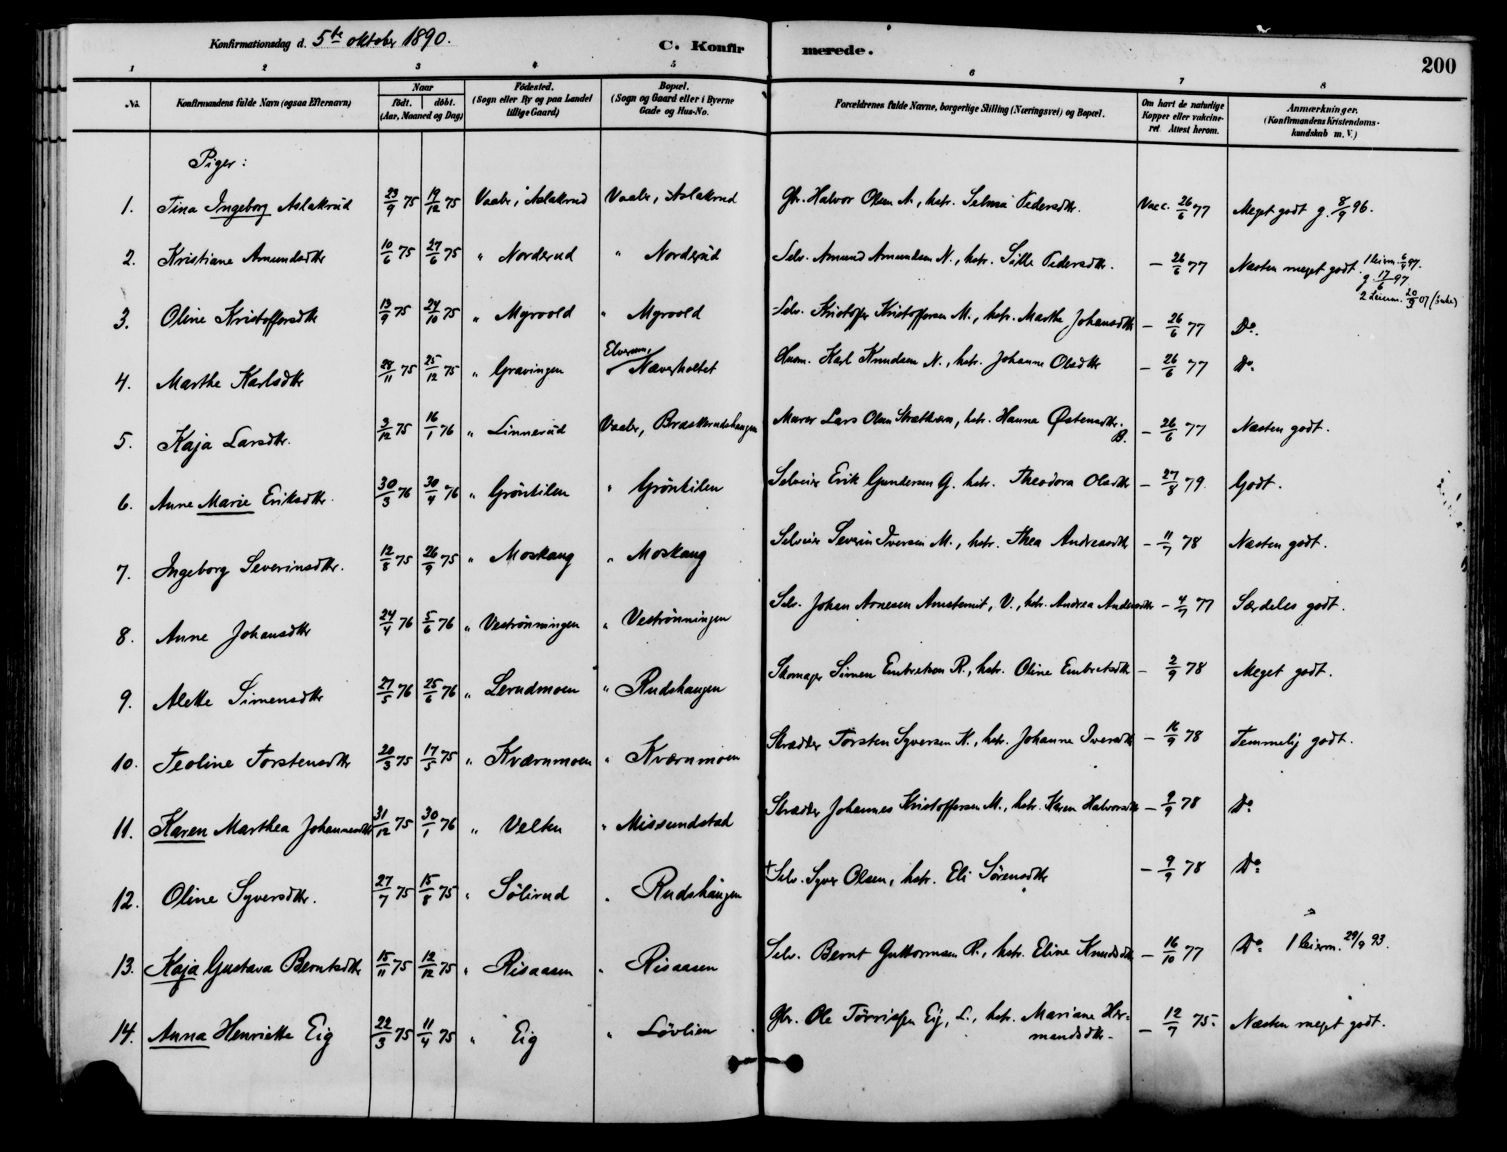 Konfirmationsdag d. 5te oktober 1890.
C. Konfirmerede.
200
1 2 3 4 5 6 7 8
No. Konfirmandens fulde Navn (ogsaa Efternavn) Naar født. døbt. (Aar, Maaned og Dag) Fødested. (Sogn eller By og paa Landet tillige Gaard) Bopæl. (Sogn og Gaard eller i Byerne Gade og Hus-No. Forældrenes fulde Navne, borgerlige Stilling (Næringsvei) og Bopæl. Om havt de naturlige Kopper eller vaccineret. Attest herom. Anmærkninger. (Konfirmandens Kristendomskundskab m. V.)
Piger:
1. Tina Ingeborg Aslakrud 23/9 75 19/12 75 Vaaler, Aslakrud Vaaler, Aslakrud Gbr. Halvor Olsen A., hstr. Selma Pedersdtr. Vacc. 26/6 77 Meget godt g. 8/9 96.
2. Kristiane Amundsdtr 10/6 75 27/6 75 " Norderud " Norderud Selv. Amund Amundsen N., hstr. Sille Pedersdtr. - 26/6 77 Næsten meget godt
g. 17/6 97
3. Oline Kristoffersdtr 13/9 75 24/10 75 " Myrvold " Myrvold Selv. Kristoffer Kristoffersen M., hstr. Marthe Johansdtr - 26/6 77 Do.
4. Marthe Karlsdtr 28/11 75 25/12 75 " Gravingen Elverum, Næverholtet Husm. Karl Knudsen N., hstr. Johanne Olsdtr - 26/6 77 Do.
5. Kaja Larsdtr. 3/12 75 16/1 76 " Linnerud Vaaler, Braskerudshaugen Murer Lars Olsen, hstr. Hanna Østensdtr. B. - 26/6 77 Næsten godt.
6. Anne Marie Eriksdtr. 30/3 76 30/4 76 " Grönkilen " Grönkilen Selveier Erik Gundersen G. hstr. Theodora Olsdtr - 27/8 79. Godt.
7. Ingeborg Severinsdtr. 12/8 75 26/9 75 " Moskaug " Moskaug Selveier Severin Iversen M., hstr. Thea Andreasdtr - 11/7 78 Næsten godt.
8. Anne Johansdtr 24/4 76 5/6 76 " Veströnningen " Veströnningen Selv. Johan Arnesen, V., hstr. Andrea Andersdtr - 4/7 77 Særdeles godt.
9. Alette Simensdtr 27/5 76 25/6 76 " Lerudmoen " Rudshaugen Skomager Simen Embretsen R., hstr. Oline Embretsdtr - 2/9 78 Meget godt.
10. Teoline Torstensdtr 20/3 75 17/5 75 " Kværnmoen " Kværnmoen Skrædder Torsten Syversen K., hstr. Johanne Iversdtr - 16/9 78 Temmelig godt.
11. Karen Marthea Johannesdtr 31/12 75 30/1 76 " Velten " Missundstad Skrædder Johannes Kristoffersen M., hstr. Karen Halvorsdtr - 9/9 78 Do
12. Oline Syversdtr. 27/7 75 15/8 75 " Sölirud " Rudshaugen † Selv. Syver Olsen, hstr. Eli Sörensdtr - 9/9 78 Do
13. Kaja Gustava Berntsdtr 15/11 75 12/12 75 " Risaasen " Risaasen Selv. Bernt Guttormsen R., hstr. Eline Knudsdtr - 16/10 77 Do 1 leierm. 29/9 93.
14. Anna Henriette Eig 22/3 75 11/4 75 " Eig " Lövlien Gbr. Ole Eig, L., hstr. Mariane Hermandsdtr. - 12/7 75. Næsten meget godt.